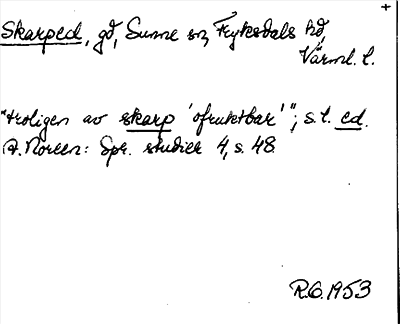 +
Skarped, gd, Sunne sn, Fryksdals hd,
Värml. l.
"troligen av skarp 'ofruktbar'"; s.t. ed.
A. Noreen: Spr. studier 4, s. 48.
R.O. 1953